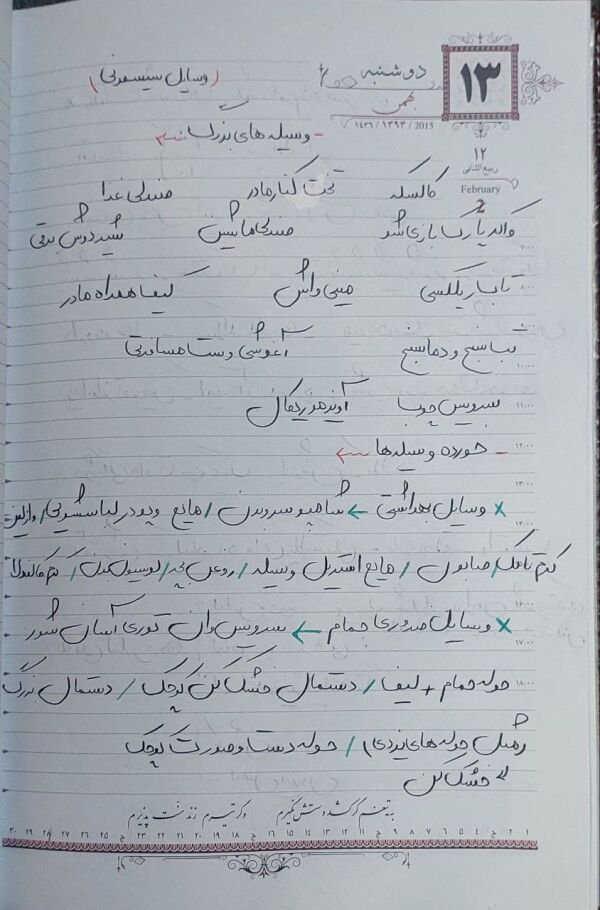 ۱۳
دوشنبه
(وسایل سیسمونی)
بهمن
۱۴۳۶ / ۱۳۹۳ / 2015
۱۲
ربیع الثانی
February
2
- وسیله های بزرگ
کالسکه تخت کنار مادر صندلی غذا
واکر یا رکسا بازی شو صندلی ماشین شیردوش برقی
تاب ریلکسی مینی واش کیف همراه مادر
تب سنج و دماسنج آغوشی و ست مسافرتی
سرویس چوب آویز موزیکال
- خورده وسیله ها
x وسایل بهداشتی ← شامپو سر و بدن / مایع و پودر لباسشویی / وازلین
کرم / صابون / مایع استریل وسیله / روغن بچه / لوسیون بدن / کرم کالندولا
x وسایل ضروری حمام ← سرویس وان توری آسان شور
حوله حمام + لیف / دستمال خشک کن کوچک / دستمال بزرگ
(مثل حوله های یزدی) / حوله دست و صورت کوچک
خشک کن
به تیغم گر کشد دستش نگیرم وگر تیرم زند منت پذیرم
۱ ۲ ۳ ۴ ۵ ۶ ۷ ۸ ۹ ۱۰ ۱۱ ۱۲ ۱۳ ۱۴ ۱۵ ۱۶ ۱۷ ۱۸ ۱۹ ۲۰ ۲۱ ۲۲ ۲۳ ۲۴ ۲۵ ۲۶ ۲۷ ۲۸ ۲۹ ۳۰